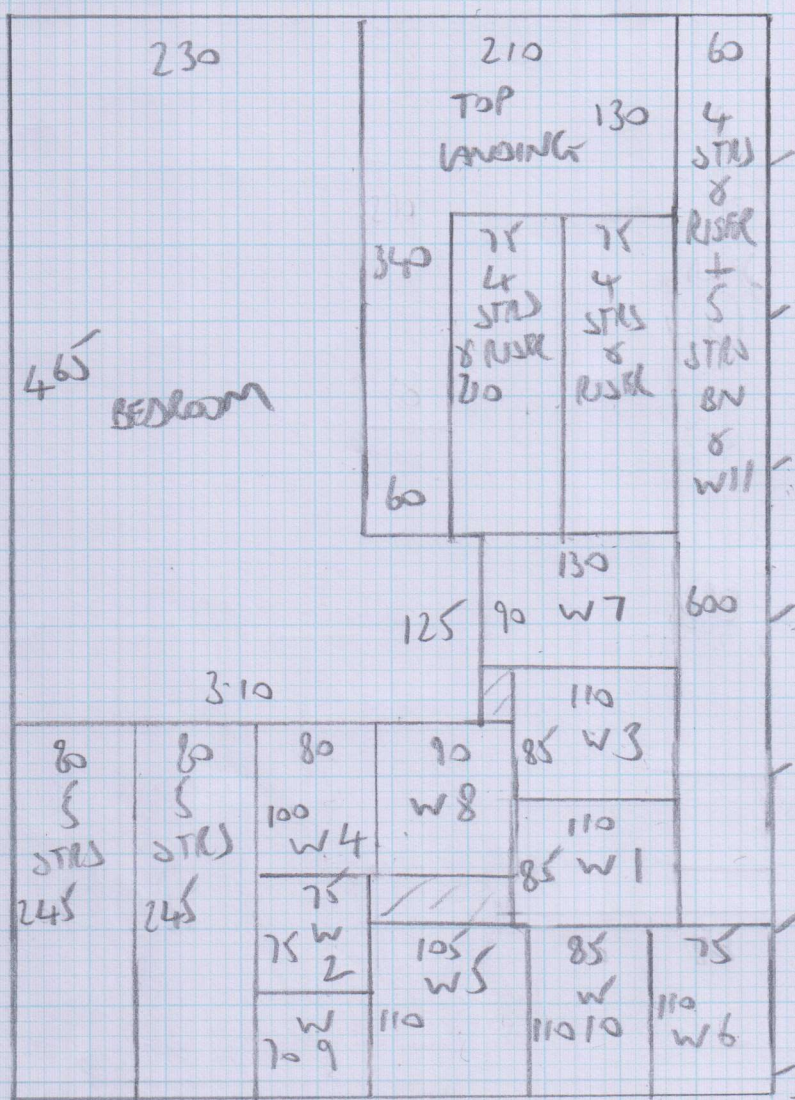 230
210
60
TOP
LANDING
130
4
STRS
&
RISER
+
5
STRS
BN
&
W11
600
340
60
75
4
STRS
& RISER
210
75
4
STRS
&
RISER
465
BEDROOM
125
310
130
90 W7
110
85 W3
110
85 W1
80
5
STRS
245
80
5
STRS
245
80
100
W4
90
W8
75
75 W
2
W
70 9
105
W5
110
85
W
110 10
75
110
W6